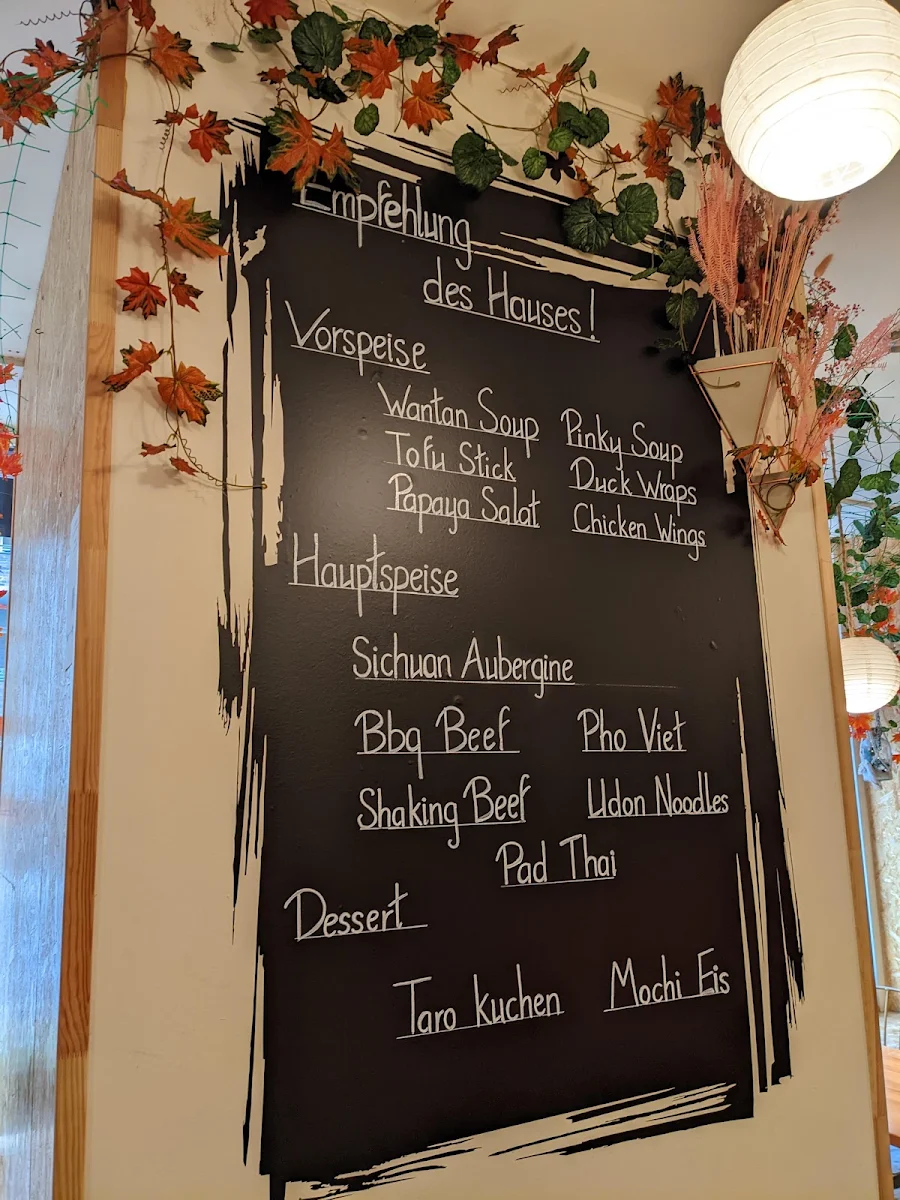 Empfehlung
des Hauses!
Vorspeise
Wantan Soup Pinky Soup
Tofu Stick Duck Wraps
Papaya Salat Chicken Wings
Hauptspeise
Sichuan Aubergine
Bbq Beef Pho Viet
Shaking Beef Udon Noodles
Pad Thai
Dessert
Taro kuchen Mochi Eis